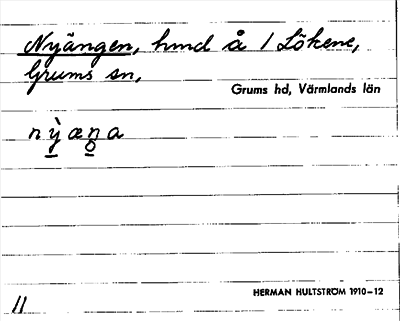 Nyängen, hmd å 1 Lökene,
Grums sn,
Grums hd, Värmlands län
nỳæŋa
HERMAN HULTSTRÖM 1910–12
11